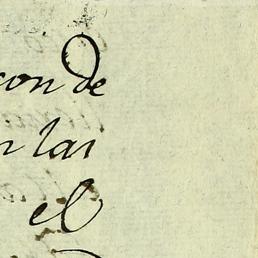 con de
n las
el